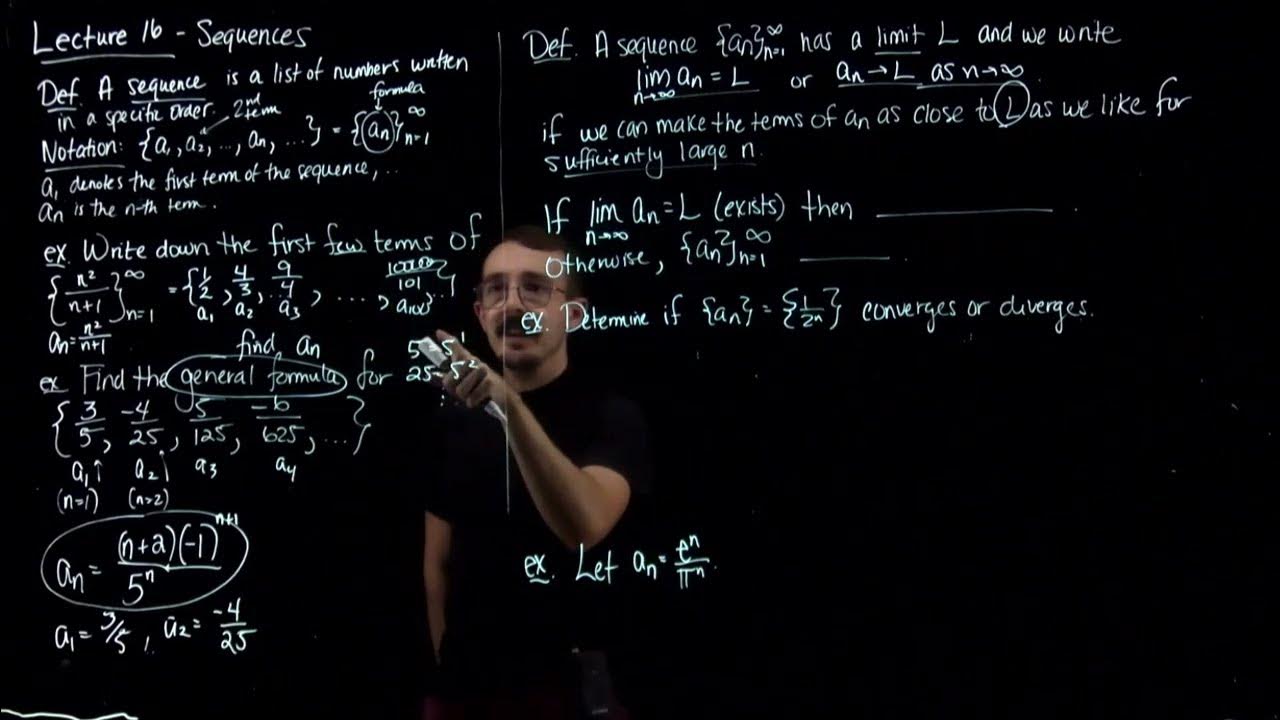 Lecture 16 - Sequences
Def. A sequence is a list of numbers written
in a specific order.
2nd term
formula
Notation: {a₁, a₂, ..., aₙ, ...} = {aₙ}ₙ₌₁^∞
a₁ denotes the first term of the sequence, ..
aₙ is the n-th term.
ex. Write down the first few terms of
{n²/(n+1)}ₙ₌₁^∞ = {1/2, 4/3, 9/4, ...., 10000/101 ..}
a₁ a₂ a₃ a₁₀₀
aₙ = n²/(n+1)
find aₙ
ex. Find the general formula for
5 = 5¹
25 = 5²
⋮
{3/5, -4/25, 5/125, -6/625, ...}
a₁↑ a₂↑ a₃ a₄
(n=1) (n=2)
aₙ = (n+2)(-1)ⁿ⁺¹/5ⁿ
a₁ = 3/5, a₂ = -4/25
Def. A sequence {aₙ}ₙ₌₁^∞ has a limit L and we write
lim n→∞ aₙ = L or aₙ → L as n→∞.
if we can make the terms of aₙ as close to L as we like for
sufficiently large n.
If lim n→∞ aₙ = L (exists) then ________ .
otherwise, {aₙ}ₙ₌₁^∞ ________ .
ex. Determine if {aₙ} = {1/2ⁿ} converges or diverges.
ex. Let aₙ = eⁿ/πⁿ.